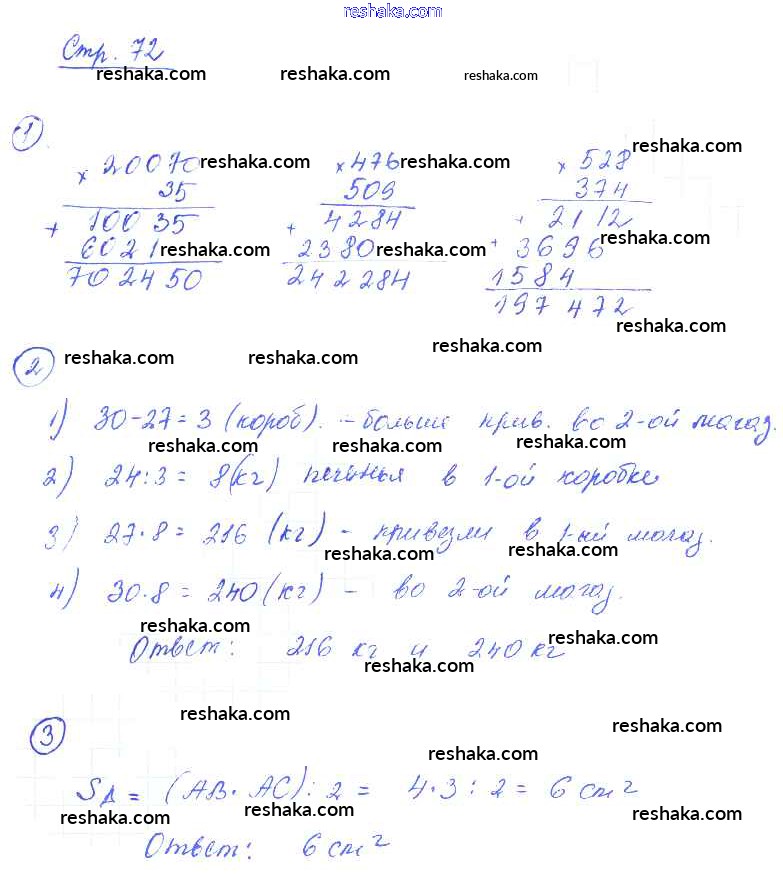 reshaka.com
Стр. 72
reshaka.com reshaka.com reshaka.com
1
reshaka.com
× 20070 reshaka.com × 476 reshaka.com × 528
35 509 374
reshaka.com
+ 10035 + 4284 + 2112
reshaka.com
6021 reshaka.com 2380 reshaka.com + 3696
702450 242284 1584
197472
reshaka.com
2 reshaka.com reshaka.com reshaka.com
1) 30-27=3 (короб). - больше прив. во 2-ой магаз.
reshaka.com reshaka.com reshaka.com
2) 24:3 = 8(кг) печенья в 1-ой коробке
3) 27·8 = 216 (кг) - привезли в 1-ый магаз.
reshaka.com reshaka.com
4) 30·8 = 240 (кг) - во 2-ой магаз.
reshaka.com
Ответ: 216 кг и 240 кг
reshaka.com reshaka.com
reshaka.com reshaka.com
3
reshaka.com
S∆ = (AB·AC):2 = 4·3:2 = 6 см²
reshaka.com reshaka.com reshaka.com
Ответ: 6 см²